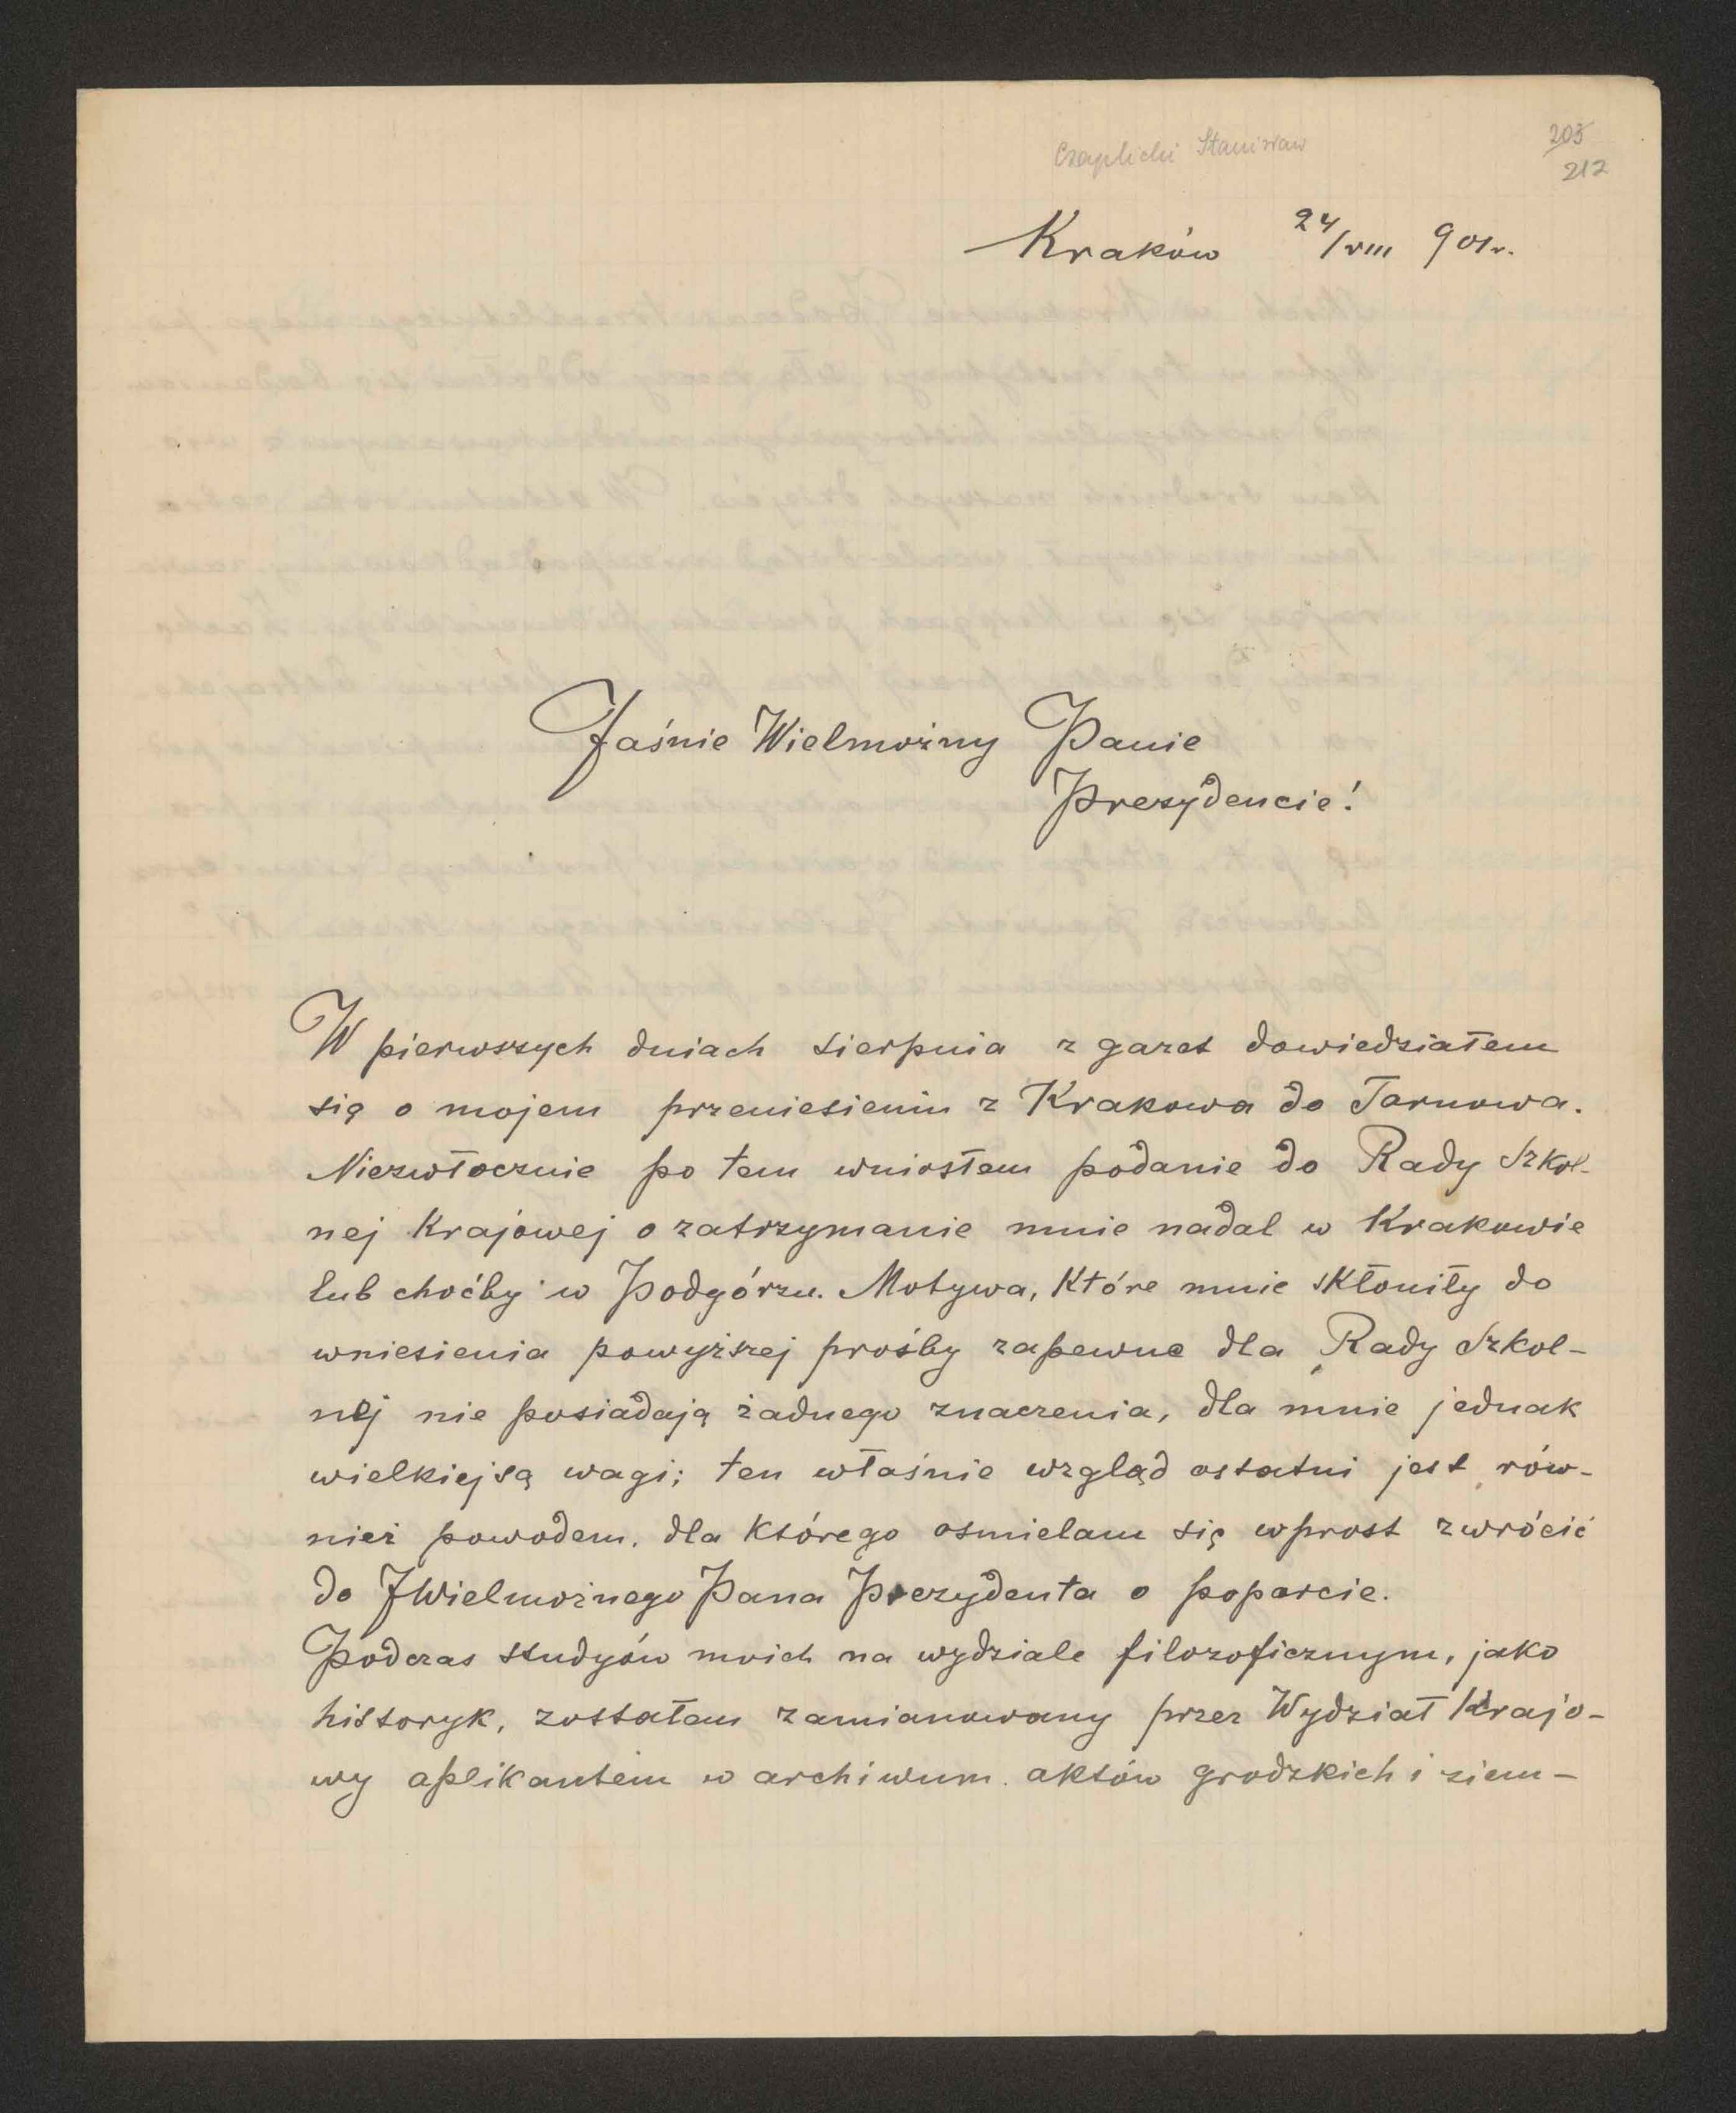 Czaplicki Stanisław
203
212
Kraków 24/VIII 901r.
Jaśnie Wielmożny Panie
Prezydencie!
W pierwszych dniach sierpnia z gazet dowiedziałem
się o mojem przeniesieniu z Krakowa do Tarnowa.
Niezwłocznie po tem wniosłem podanie do Rady Szkol-
nej Krajowej o zatrzymanie mnie nadal w Krakowie
lub choćby w Podgórzu. Motywa, które mnie skłoniły do
wniesienia powyższej prośby zapewne dla Rady Szkol-
nej nie posiadają żadnego znaczenia, dla mnie jednak
wielkiej są wagi; ten właśnie wzgląd ostatni jest rów-
nież powodem, dla którego osmielam się wprost zwrócić
do JWielmożnego Pana Prezydenta o poparcie.
Podczas studyów moich na wydziale filozoficznym, jako
historyk, zostałem zamianowany przez Wydział Krajo-
wy aplikantem w archiwum aktów grodzkich i ziem-